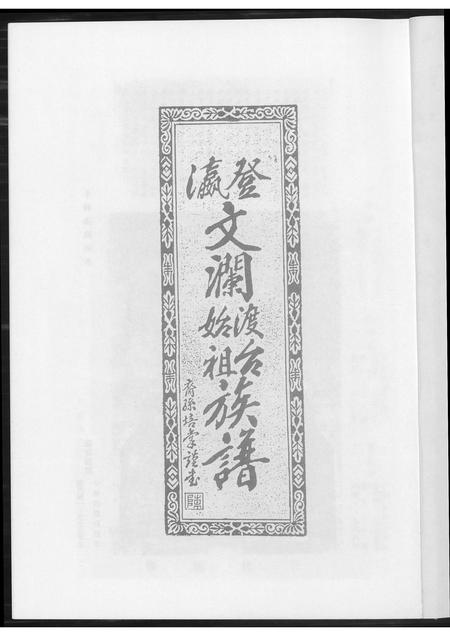 登瀛
文瀾
渡台
始祖
族譜
裔孫培棠謹書
陳